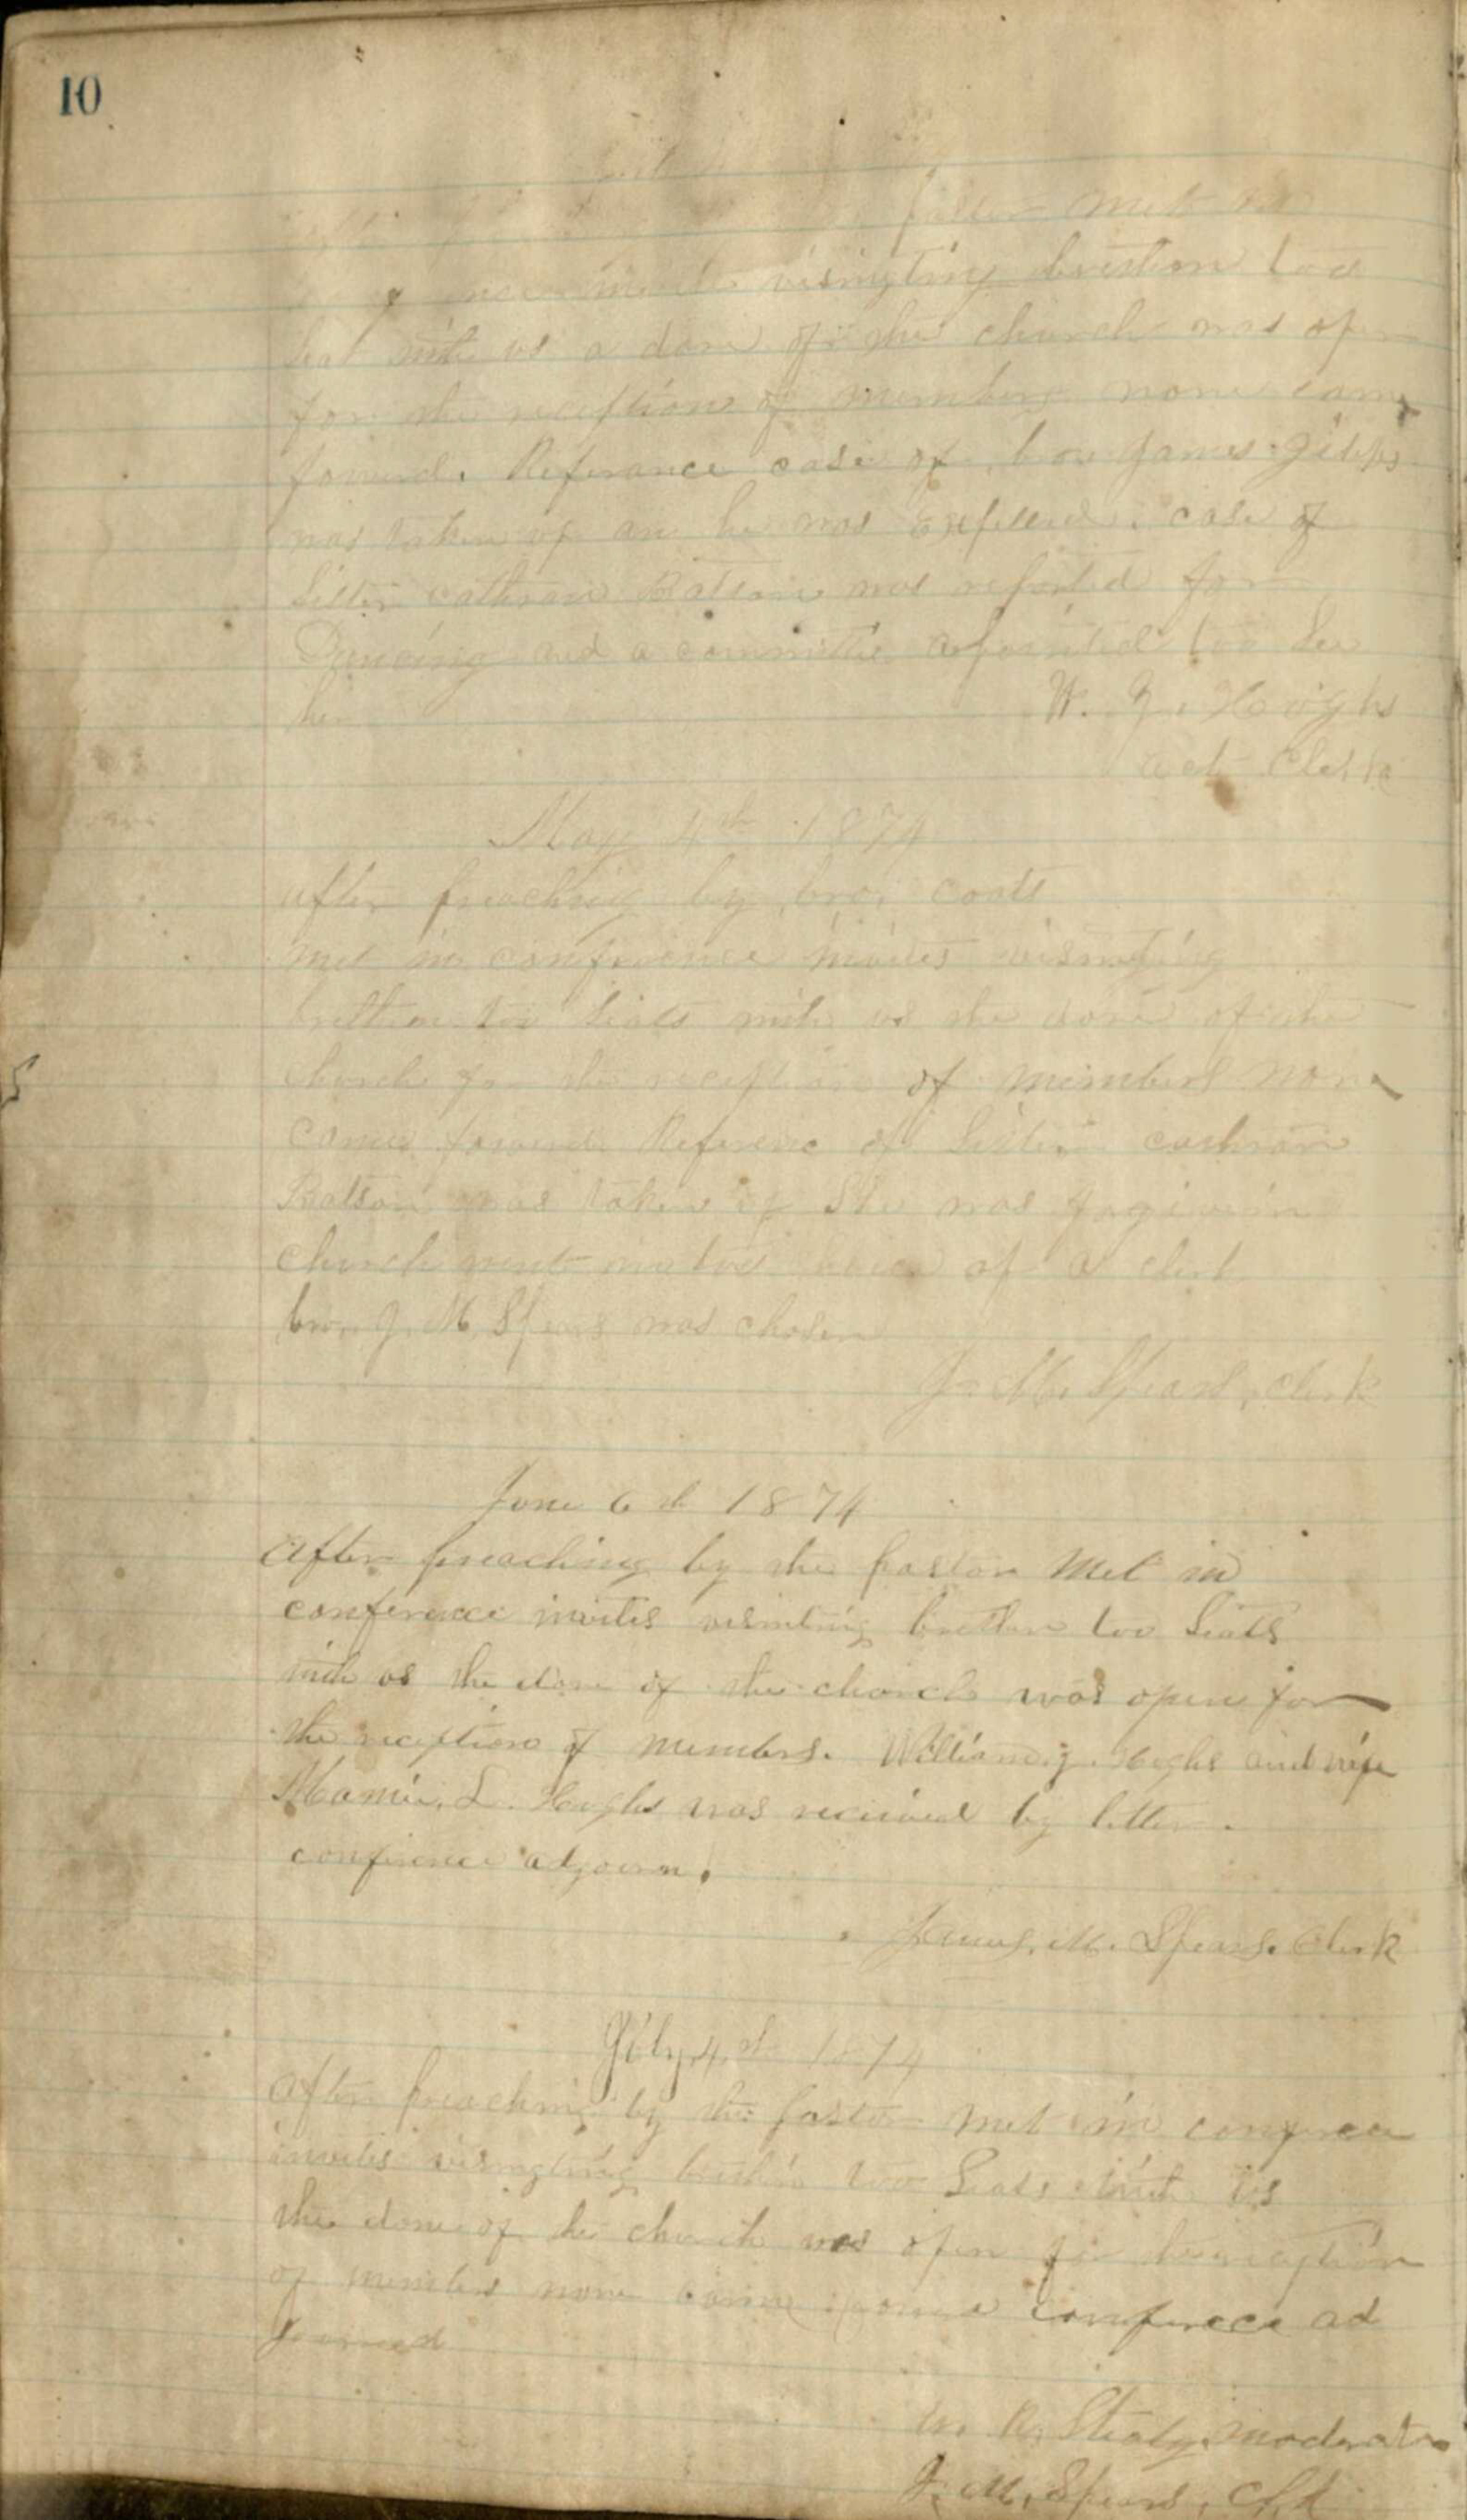 10
pastor met in
visingting brethren too
seat with us a dore of the church was open
for the reception of members none came
forward. Referance case of bro James
was taken up an he was expelled. case of
Sister cathrine Batson was reported for
Dancing and a committee apointed too See
her W. J. Hoighs
act Clerk
May 4th 1874
after preaching by bro. coats
met in conference invites visingting
brethren too Seats with us the dore of the
church for the reception of members none
came forward Reference of Sister cathrine
Batson was taken up She was forgivin
church went into choice of a clerk
bro. J. M. Spears was chosen
J. M. Spears, clerk
June 6th 1874
After preaching by the pastor Met in
conference invites visinting brethern too Seats
with us the dore of the church was open for
the reception of members. William J. Hoghs and wife
Mamie. L. Hoghs was received by letter.
conference adjourn.
James. M. Spears. Clerk
July 4th 1874
After preaching by the pastor met in conferece
invites visingting brethrin too Seats with us
the dore of the church was open for the reception
of members none came conferece ad
journed
moderator
J. M. Spears, Clk